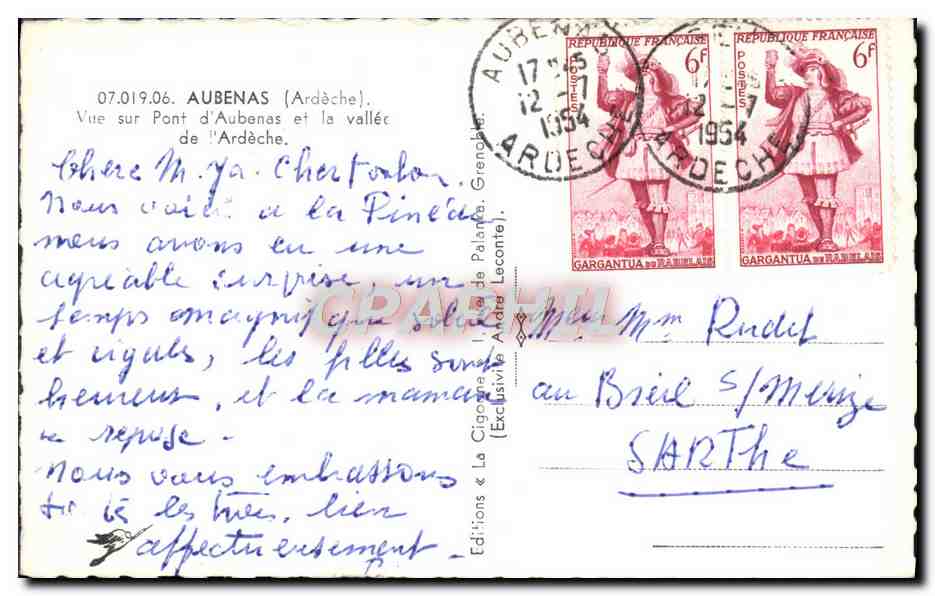 07.019.06. AUBENAS (Ardèche).
Vue sur Pont d'Aubenas et la vallée
de l'Ardèche.
Chère M.
Nous voici à la Pinède
nous avons eu une
agréable surprise, un
temps magnifique soleil
et cigales, les filles sont
heureuses, et la maman
se repose -
Nous vous embrassons
les trois, bien
affectueusement -
Editions « La Cigogne », de Palanka. Grenoble.
(Exclusivité André Leconte).
CPAPHIL
AUBENAS
17 45
12 - 7
1954
ARDECHE
12 - 7
1954
ARDECHE
REPUBLIQUE FRANÇAISE
6F
POSTES
GARGANTUA DE RABELAIS
REPUBLIQUE FRANÇAISE
6F
POSTES
GARGANTUA DE RABELAIS
Mr Mm Rudel
au Breil s/ Merize
SARThe